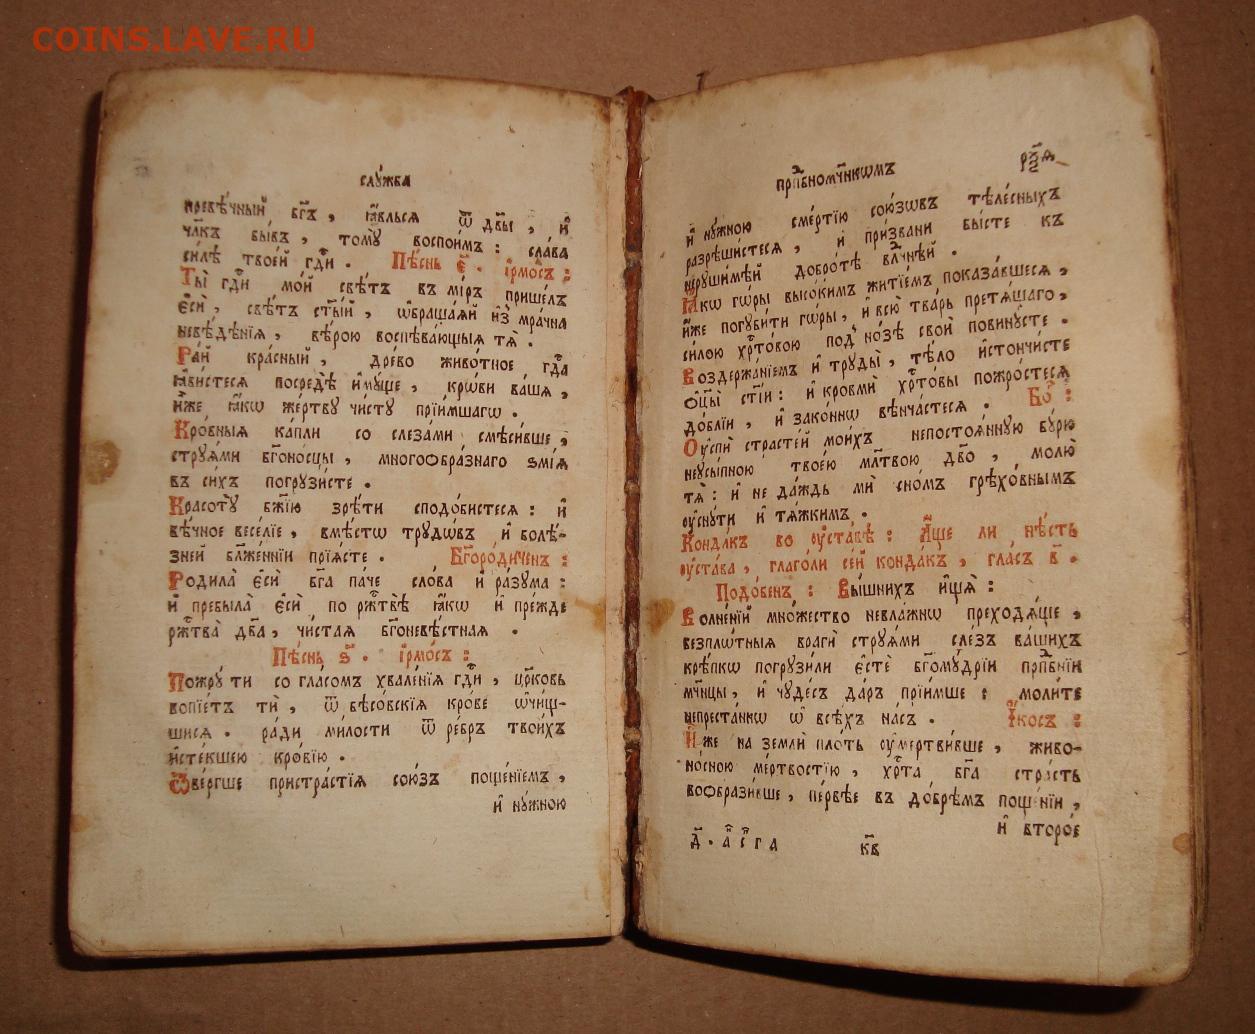 COINS.LAVE.RU
слꙋ́жба
превѣ́чный бг҃ъ, ꙗ҆влься ѿ дв҃ы, и҆
чл҃къ бы́въ, томꙋ̀ воспои́мъ: сла́ва
си́лѣ твое́й гдⷭ҇и. Пѣ́снь є҃. і҆рмо́съ:
Ты̀ гдⷭ҇и мо́й свѣ́тъ въ мі́ръ прише́лъ
є҆сѝ, свѣ́тъ ст҃ы́й, ѡ҆браща́ѧй и҆з̾ мра́чна
невѣ́дѣнїѧ, вѣ́рою воспѣва́ющыѧ тѧ̀.
Ра́й кра́сный, дре́во живо́тное гдⷭ҇а
ꙗ҆ви́стеся посредѣ̀ и҆мꙋ́ще, крѡ́ви ва́шѧ,
и҆̀же ꙗ҆́кѡ же́ртвꙋ чи́стꙋ прїи́мшагѡ.
Кро́вныѧ ка́пли со слеза́ми смѣси́вше,
стрꙋѧ́ми бг҃оно́сцы, многоѻбра́знаго ѕмі́ѧ
въ си́хъ погрꙋзи́сте.
Красотꙋ̀ бж҃їю зрѣ́ти сподо́бистеся: и҆
вѣ́чное весе́лїе, вмѣ́стѡ трꙋдѡ́въ и҆ болѣ́-
зней бл҃же́ннїи прїѧ́сте. Бг҃оро́диченъ:
Родила̀ є҆сѝ бг҃а па́че сло́ва и҆ ра́зꙋма:
и҆ пребыла̀ є҆сѝ по ржⷭ҇твѣ̀ ꙗ҆́кѡ и҆ пре́жде
ржⷭ҇тва̀ дв҃а, чи́стая бг҃оневѣ́стная.
Пѣ́снь ѕ҃. і҆рмо́съ:
Пожрꙋ́ ти со гла́сомъ хвале́нїѧ гдⷭ҇и, цр҃ковь
вопїе́тъ тѝ, ѿ бѣсо́вскїѧ кро́ве ѡ҆чи́щ-
шися. ра́ди ми́лости ѿ ре́бръ твои́хъ
и҆сте́кшею кро́вїю.
Ѿве́ргше пристра́стїѧ сою́зъ поще́нїемъ,
и҆ нꙋ́жною
прпⷣбномч҃нкѡмъ
и҆ нꙋ́жною сме́ртїю сою́зѡвъ тѣле́сныхъ
разрѣши́стеся, и҆ при́звани бы́сте къ
нерꙋши́мѣй добро́тѣ влⷣчнѣй.
Ꙗ҆́кѡ го́ры высо́кимъ житїе́мъ показа́вшеся,
и҆́же погꙋби́ти го́ры, и҆ всю̀ тва́рь претѧ́щаго,
си́лою хрⷭ҇то́вою под̾ но́зѣ своѝ повинꙋ́сте.
Воздержа́нїемъ и҆ трꙋды̀, тѣ́ло и҆стончи́сте
ѻ҆ц҃ы̀ ст҃і́и: и҆ кровмѝ хрⷭ҇то́вы пожро́стеся
до́блїи, и҆ зако́ннѡ вѣнча́стеся. Бо҃:
Оу҆спѝ страсте́й мои́хъ непостоѧ́ннꙋю бꙋ́рю
неꙋсы́пною твое́ю мл҃твою дв҃о, молю̀
тѧ̀: и҆ не да́ждь мѝ сно́мъ грѣхо́внымъ
ᲂу҆снꙋ́ти и҆ тѧ́жкимъ.
Конда́къ во ᲂу҆ста́вѣ: А҆́ще ли нѣ́сть
ᲂу҆ста́ва, глаго́ли се́й конда́къ, гла́съ в҃.
Подо́бенъ: Вы́шнихъ и҆щѧ̀:
Волне́нїй мно́жество невла́жнѡ преходѧ́ще,
безплѡ́тныѧ врагѝ стрꙋѧ́ми сле́зъ ва́шихъ
крѣ́пкѡ погрꙋзи́ли є҆́сте бг҃омꙋ́дрїи прпⷣбнїи
мч҃нцы, и҆ чꙋде́съ да́ръ прїи́мше: моли́те
непреста́ннѡ ѡ҆ всѣ́хъ на́съ. І҆́косъ:
И҆̀же на землѝ пло́ть ᲂумертви́вше, живо-
но́сною ме́ртвостїю, хрⷭ҇та̀ бг҃а стра́сть
воѻбрази́вше, пе́рвѣе въ до́брѣмъ поще́нїи,
и҆ второ́е
кв҃